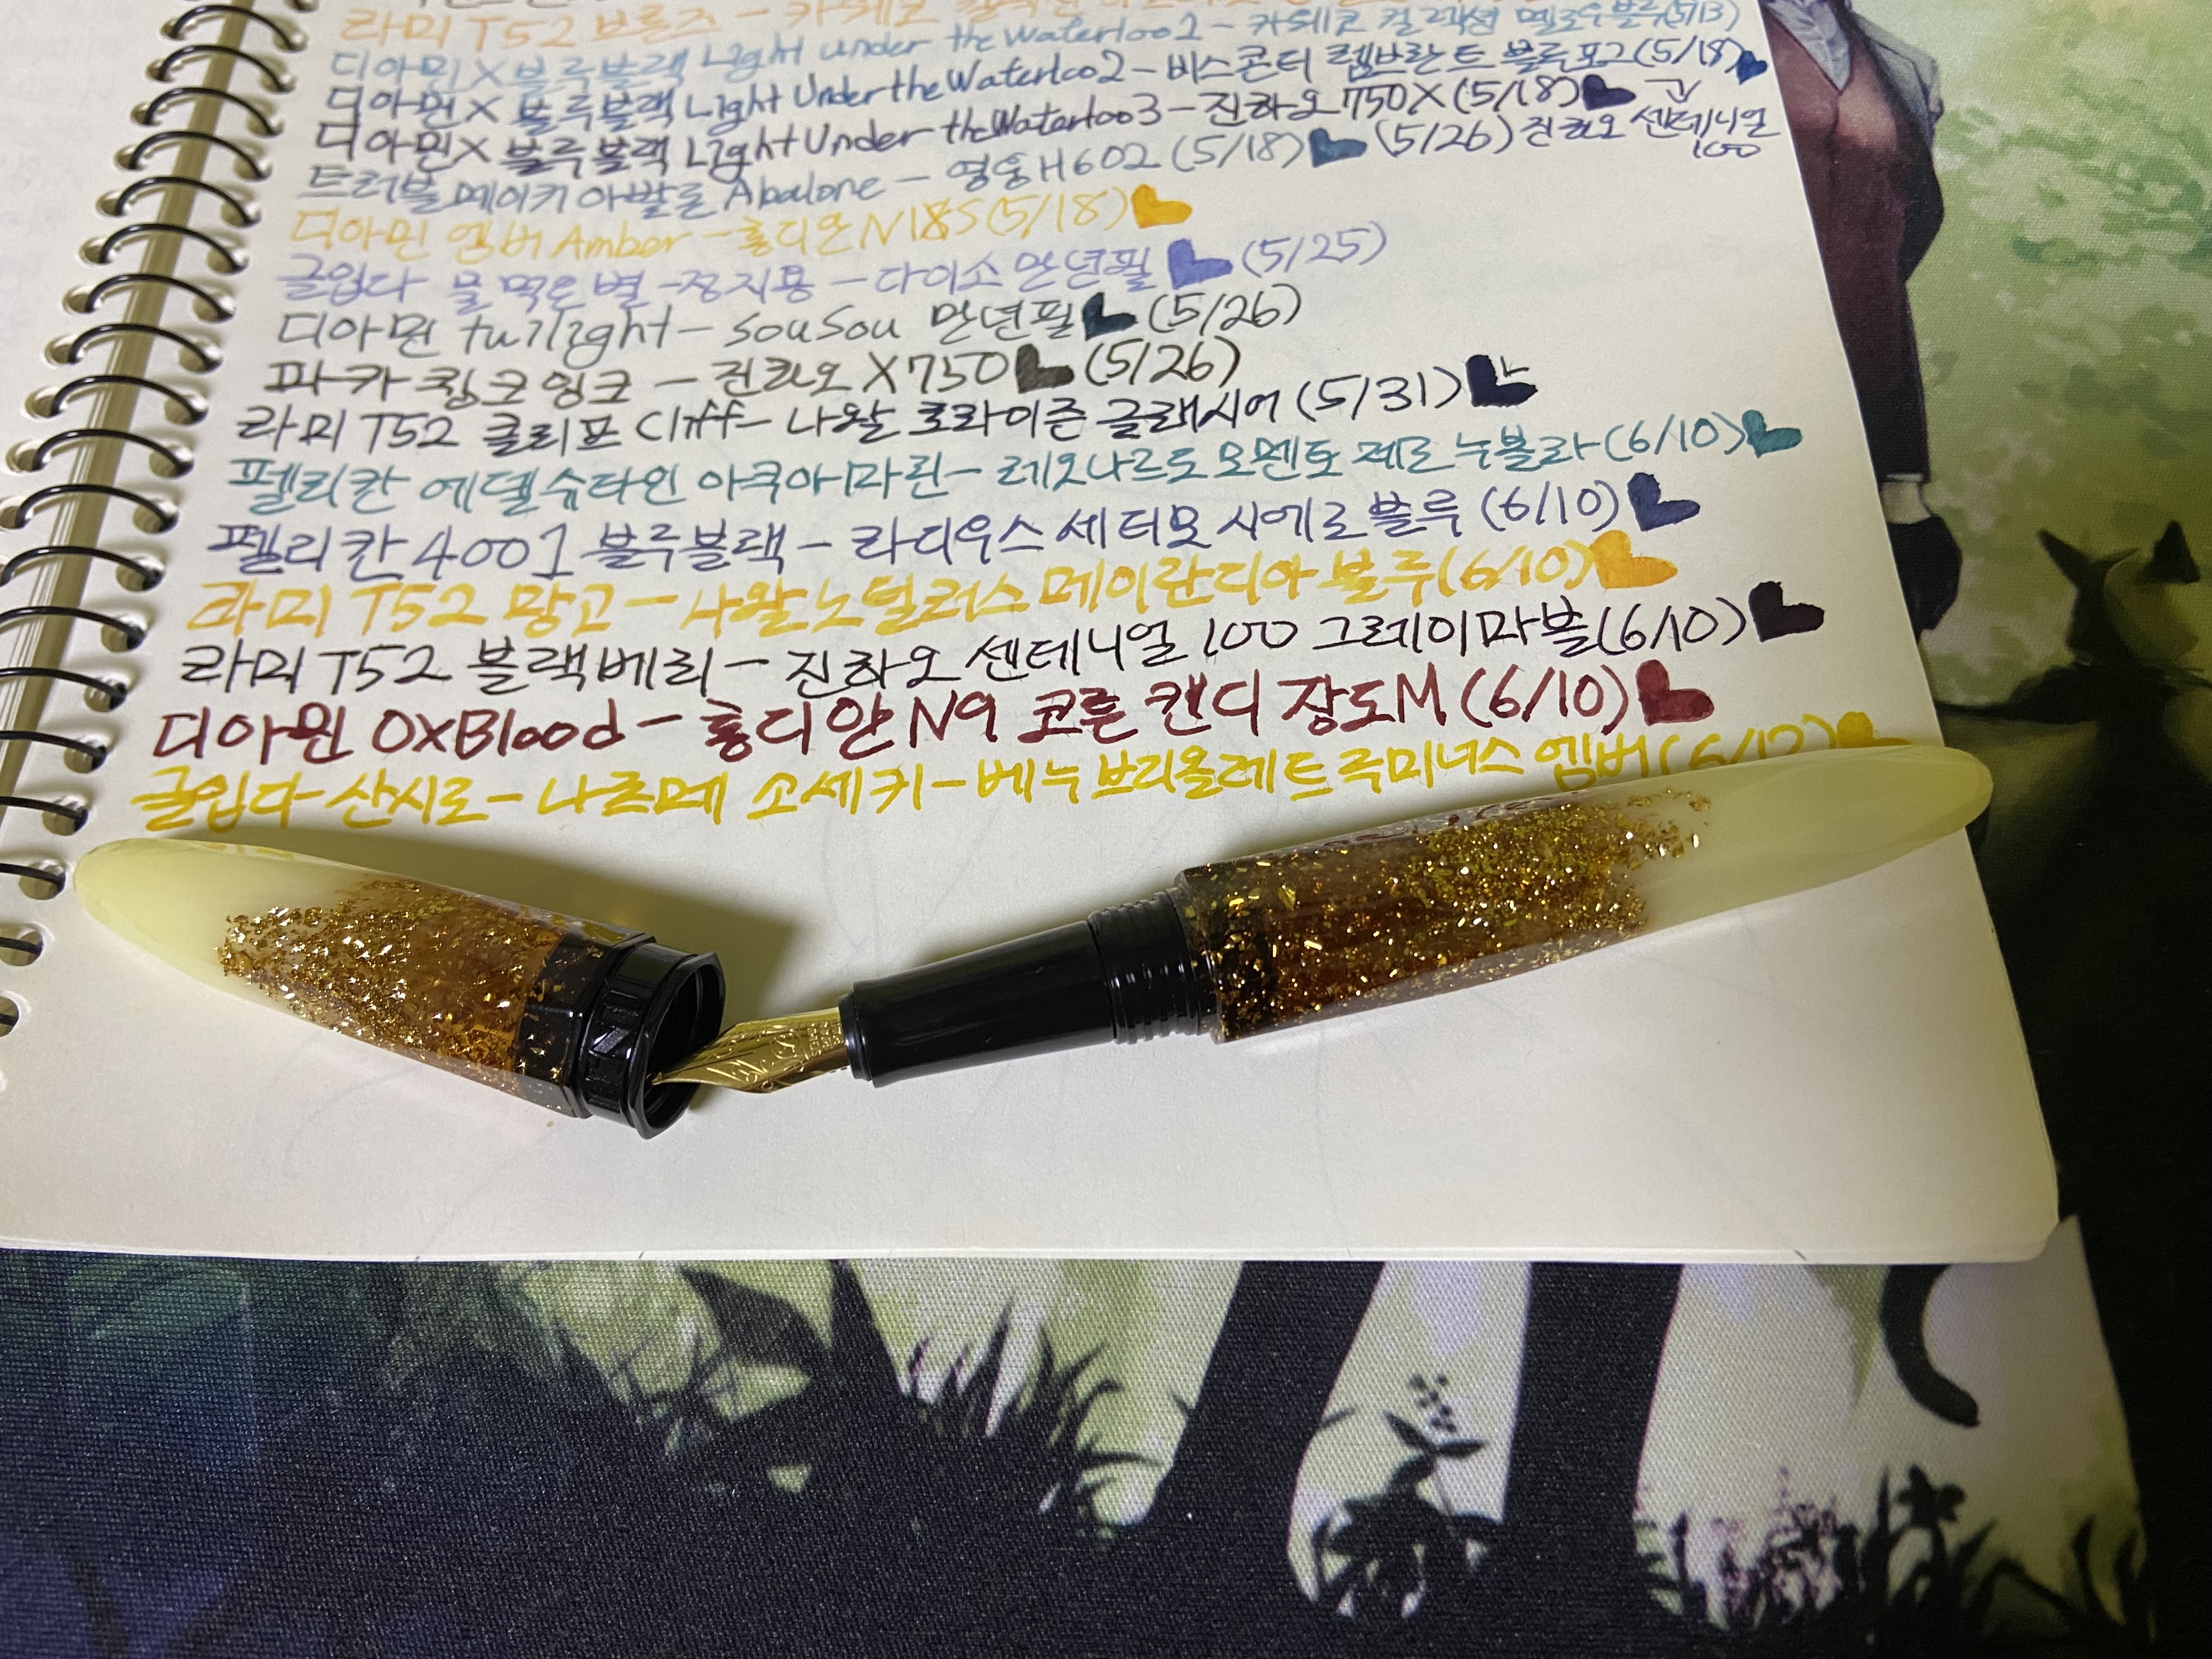 라미 T52 브론즈 - 카웨코 컬렉션
디아민X블루블랙 Light under the Waterloo2 - 카웨코 컬렉션 멜로우블루(5/13)
디아민X블루블랙 Light Under the Waterloo2 - 비스콘티 렘브란트 블루포그(5/18)
디아민X 블루블랙 Light Under the Waterloo3 - 진하오 750X (5/18)
트러블메이커 아발론 Abalone - 영웅H602 (5/18) (5/26) 진하오 센테니얼 100
디아민 엠버 Amber - 홍디안 N18S(5/18)
글입다 물먹은별 - 정지용 - 다이소 만년필 (5/25)
디아민 twilight - SouSou 만년필 (5/26)
파카 큉크 잉크 - 진하오 X750 (5/26)
라미 T52 클리프 Cliff - 나왈 호라이즌 글래시어 (5/31)
펠리칸 에델슈타인 아쿠아마린 - 레오나르도 모멘토 제로 누볼라 (6/10)
펠리칸 4001 블루블랙 - 라디우스 세티모 시에로 블루 (6/10)
라미 T52 망고 - 나왈 노틸러스 메이란디아 블루(6/10)
라미 T52 블랙베리 - 진하오 센테니얼 100 그레이마블(6/10)
디아민 OXBlood - 홍디안 N9 코튼 캔디 장도M (6/10)
글입다 - 산시로 - 나츠메 소세키 - 베누 브리올레트 루미너스 엠버(6/12)